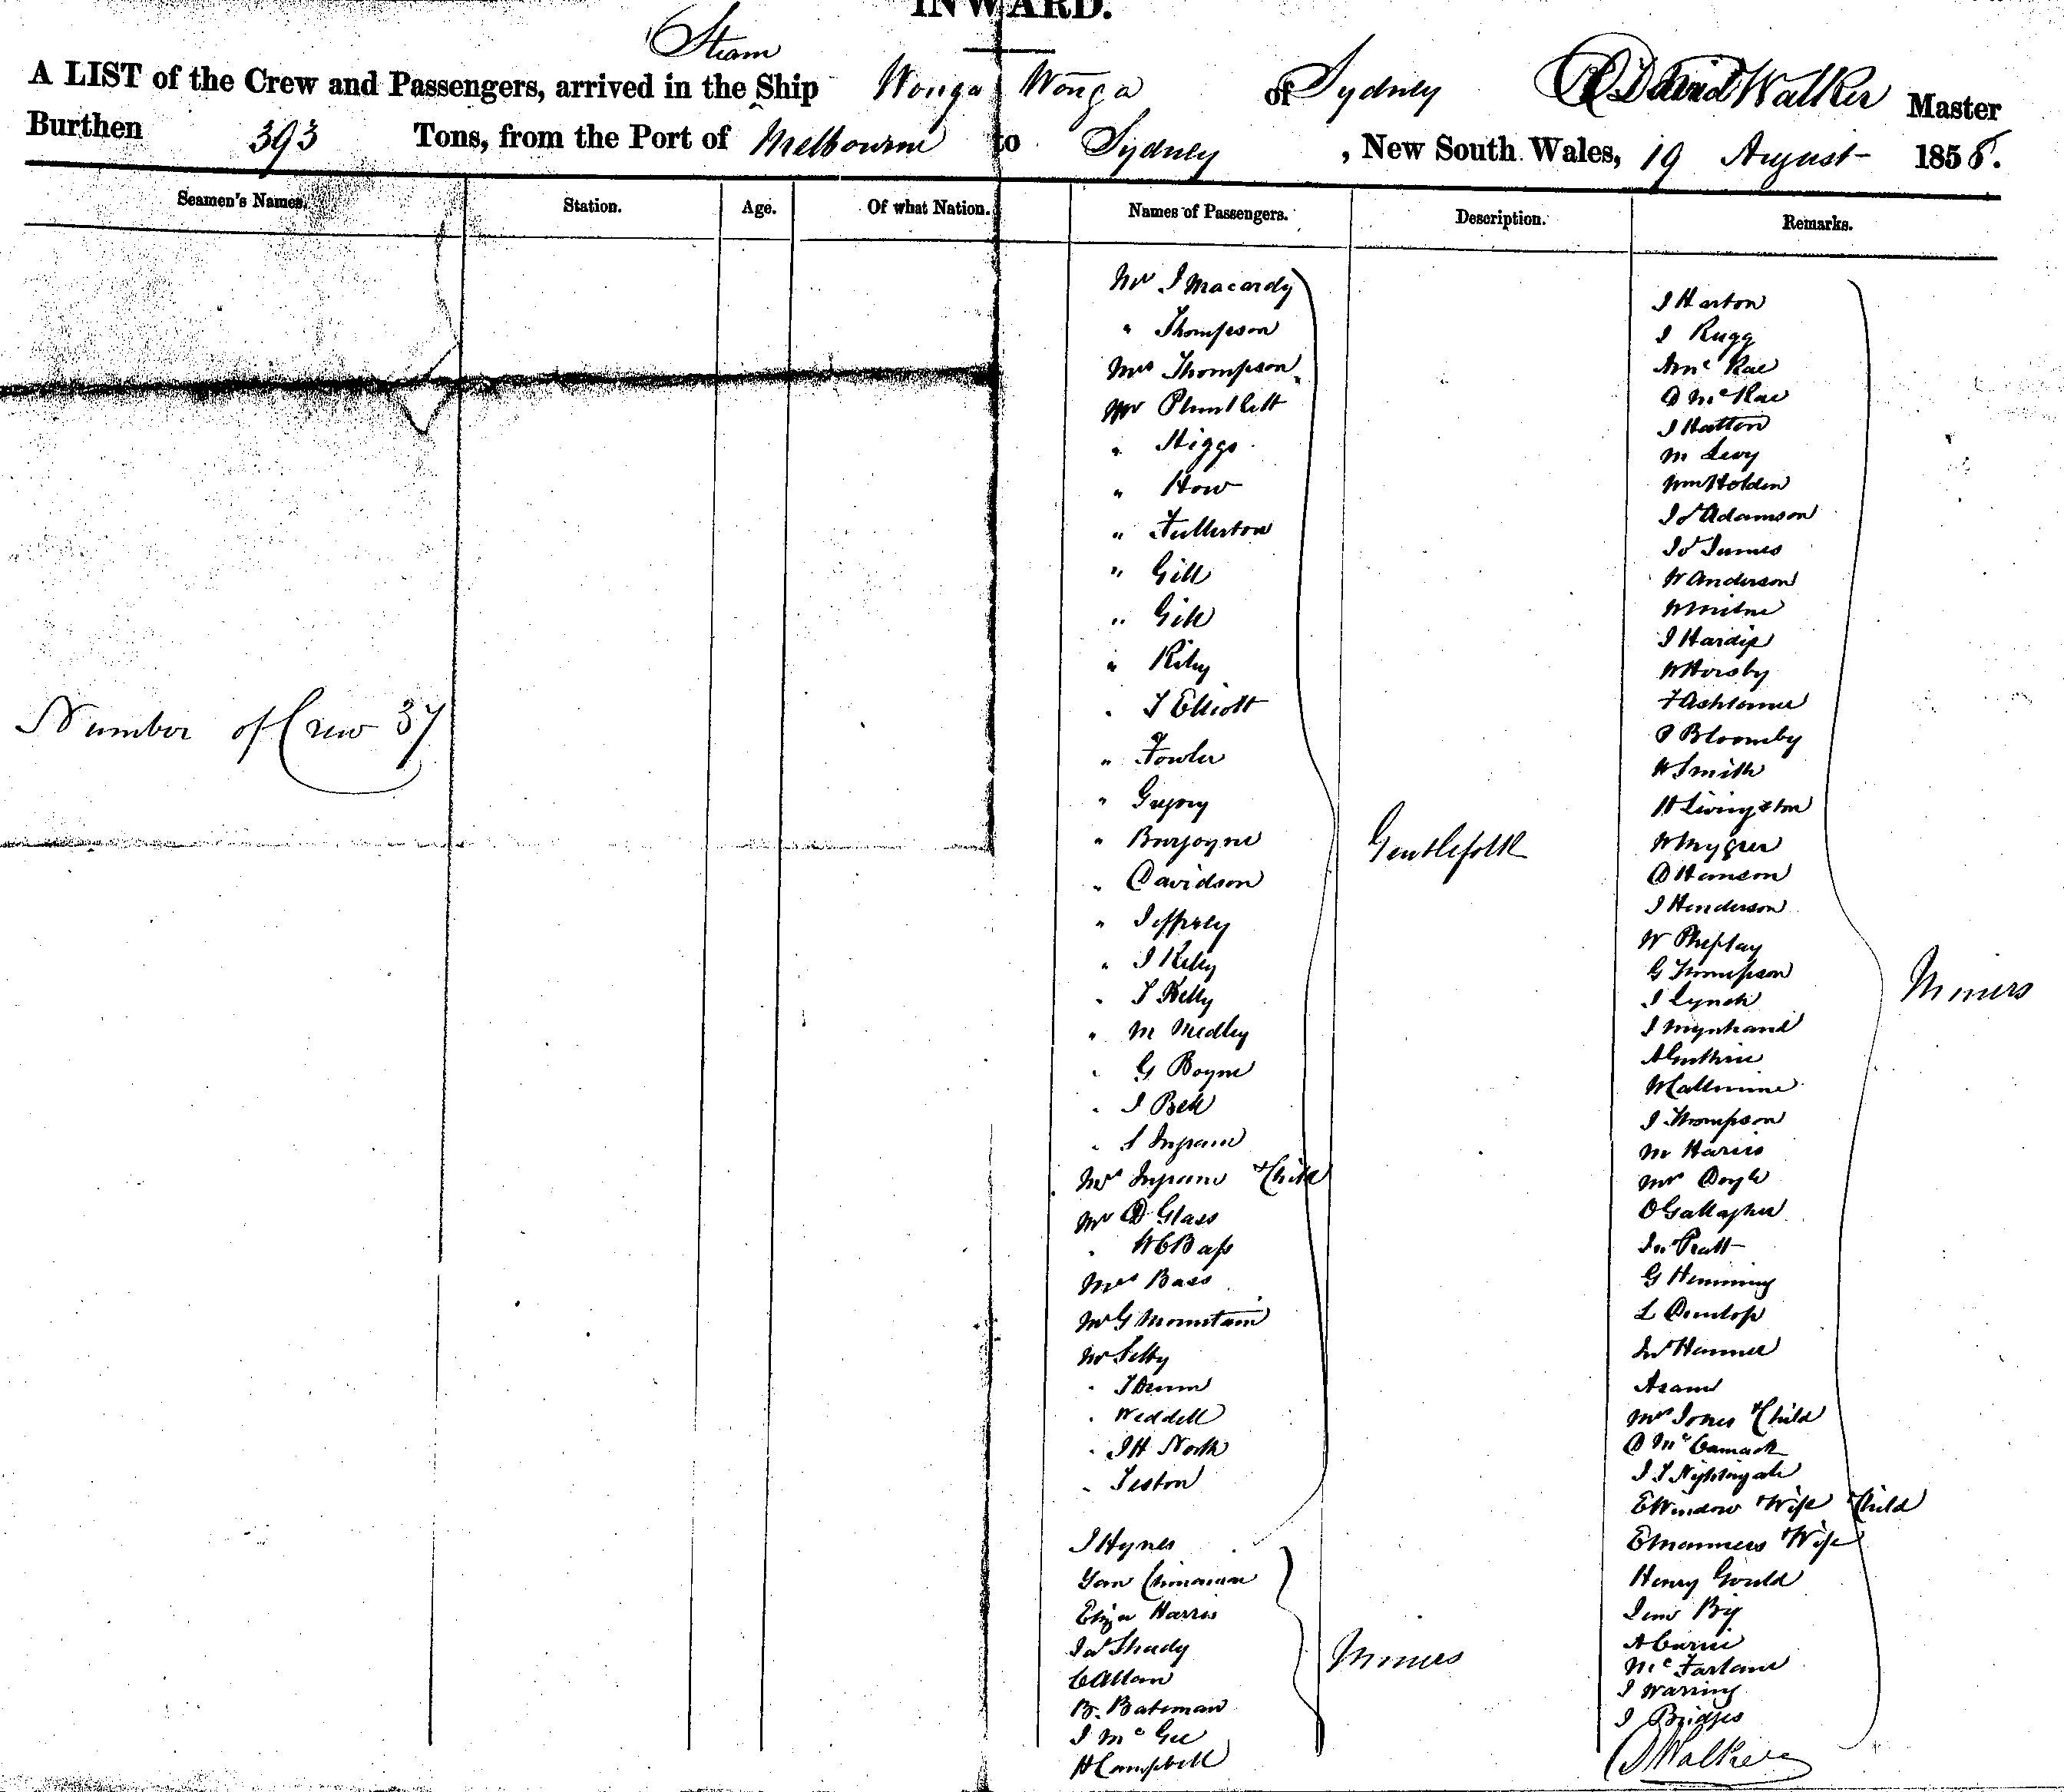 INWARD.
Steam
A LIST of the Crew and Passengers, arrived in the Ship Wonga Wonga of Sydney David Walker Master
Burthen 393 Tons, from the Port of Melbourne to Sydney, New South Wales, 19 August 1858.
Seamen's Names. Station. Age. Of what Nation. Names of Passengers. Description. Remarks.
Number of Crew 37
Mr J Macardy
" Thompson
Mrs Thompson
Mr Plunkett
" Higgs
" How
" Fullerton
" Gill
" Gill
" Riley
" T Elliott
" Fowler
" Gregory
" Burgoyne
" Davidson
" Jeffrey
" J Kelly
" T Kelly
" M Medley
" G Boyne
" J Bell
" S Ingram
Mrs Ingram & Child
Mr D Glass
" W C Bass
Mrs Bass
Mr G Mountain
Mr Selby
"
" Weddell
" J H North
" Teston
Gentlefolk
J Hynes
Chinaman
Eliza Harris
Jas Shady
C Allan
B. Bateman
J McGee
H Campbell
Miners
J Harton
J Rugg
McRae
D McRae
J Hatton
M Levy
Wm Holden
Jos Adamson
James
W Anderson
W Milne
J Hardie
W Horsby
F Ashtonne
P Bloomby
W Smith
H Livingston
W
D Hanson
J Henderson
W
G Thompson
J Lynch
J
A Guthrie
W
J Thompson
M Harris
Mr Doyle
O Gallagher
Jno Pratt
G Hemming
L Dunlop
Jno
Adam
Mrs Jones & Child
D McCamack
J T Nightingale
E Window & Wife & Child
E Manners & Wife
Henry Gould
A Currie
McFarlane
J Warring
J Bridges
Miners
D Walker